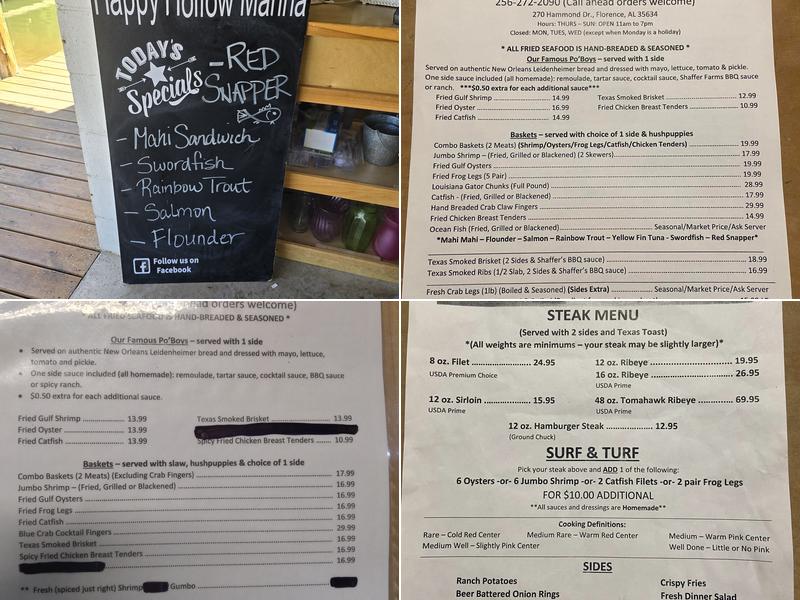 Happy Hollow Marina
TODAY'S
Specials
- RED
SNAPPER
- Mahi Sandwich
- Swordfish
- Rainbow Trout
- Salmon
- Flounder
Follow us on
Facebook
256-272-2090 (Call ahead orders welcome)
270 Hammond Dr., Florence, AL 35634
Hours: THURS – SUN: OPEN 11am to 7pm
Closed: MON, TUES, WED (except when Monday is a holiday)
* ALL FRIED SEAFOOD IS HAND-BREADED & SEASONED *
Our Famous Po'Boys – served with 1 side
Served on authentic New Orleans Leidenheimer bread and dressed with mayo, lettuce, tomato & pickle.
One side sauce included (all homemade): remoulade, tartar sauce, cocktail sauce, Shaffer Farms BBQ sauce
or ranch. ***$0.50 extra for each additional sauce***
Fried Gulf Shrimp 14.99 Texas Smoked Brisket 12.99
Fried Oyster 16.99 Fried Chicken Breast Tenders 10.99
Fried Catfish 14.99
Baskets – served with choice of 1 side & hushpuppies
Combo Baskets (2 Meats) (Shrimp/Oysters/Frog Legs/Catfish/Chicken Tenders) 19.99
Jumbo Shrimp – (Fried, Grilled or Blackened) (2 Skewers) 17.99
Fried Gulf Oysters 19.99
Fried Frog Legs (5 Pair) 19.99
Louisiana Gator Chunks (Full Pound) 28.99
Catfish - (Fried, Grilled or Blackened) 17.99
Hand Breaded Crab Claw Fingers 29.99
Fried Chicken Breast Tenders 14.99
Ocean Fish (Fried, Grilled or Blackened) Seasonal/Market Price/Ask Server
*Mahi Mahi – Flounder – Salmon – Rainbow Trout – Yellow Fin Tuna - Swordfish – Red Snapper*
Texas Smoked Brisket (2 Sides & Shaffer's BBQ sauce) 18.99
Texas Smoked Ribs (1/2 Slab, 2 Sides & Shaffer's BBQ sauce) 16.99
Fresh Crab Legs (1lb) (Boiled & Seasoned) (Sides Extra) Seasonal/Market Price/Ask Server
ahead orders welcome)
* ALL FRIED SEAFOOD IS HAND-BREADED & SEASONED *
Our Famous Po'Boys – served with 1 side
• Served on authentic New Orleans Leidenheimer bread and dressed with mayo, lettuce,
tomato and pickle.
• One side sauce included (all homemade): remoulade, tartar sauce, cocktail sauce, BBQ sauce
or spicy ranch.
• $0.50 extra for each additional sauce.
Fried Gulf Shrimp 13.99 Texas Smoked Brisket 13.99
Fried Oyster 13.99
Fried Catfish 13.99 Spicy Fried Chicken Breast Tenders 10.99
Baskets – served with slaw, hushpuppies & choice of 1 side
Combo Baskets (2 Meats) (Excluding Crab Fingers) 17.99
Jumbo Shrimp – (Fried, Grilled or Blackened) 16.99
Fried Gulf Oysters 16.99
Fried Frog Legs 16.99
Fried Catfish 16.99
Blue Crab Cocktail Fingers 29.99
Texas Smoked Brisket 16.99
Spicy Fried Chicken Breast Tenders 16.99
16.99
** Fresh (spiced just right) Shrimp Gumbo
STEAK MENU
(Served with 2 sides and Texas Toast)
*(All weights are minimums – your steak may be slightly larger)*
8 oz. Filet 24.95 12 oz. Ribeye 19.95
USDA Premium Choice 16 oz. Ribeye 26.95
USDA Prime
12 oz. Sirloin 15.95 48 oz. Tomahawk Ribeye 69.95
USDA Prime USDA Prime
12 oz. Hamburger Steak 12.95
(Ground Chuck)
SURF & TURF
Pick your steak above and ADD 1 of the following:
6 Oysters -or- 6 Jumbo Shrimp -or- 2 Catfish Filets -or- 2 pair Frog Legs
FOR $10.00 ADDITIONAL
**All sauces and dressings are Homemade**
Cooking Definitions:
Rare – Cold Red Center Medium Rare – Warm Red Center Medium – Warm Pink Center
Medium Well – Slightly Pink Center Well Done – Little or No Pink
SIDES
Ranch Potatoes Crispy Fries
Beer Battered Onion Rings Fresh Dinner Salad